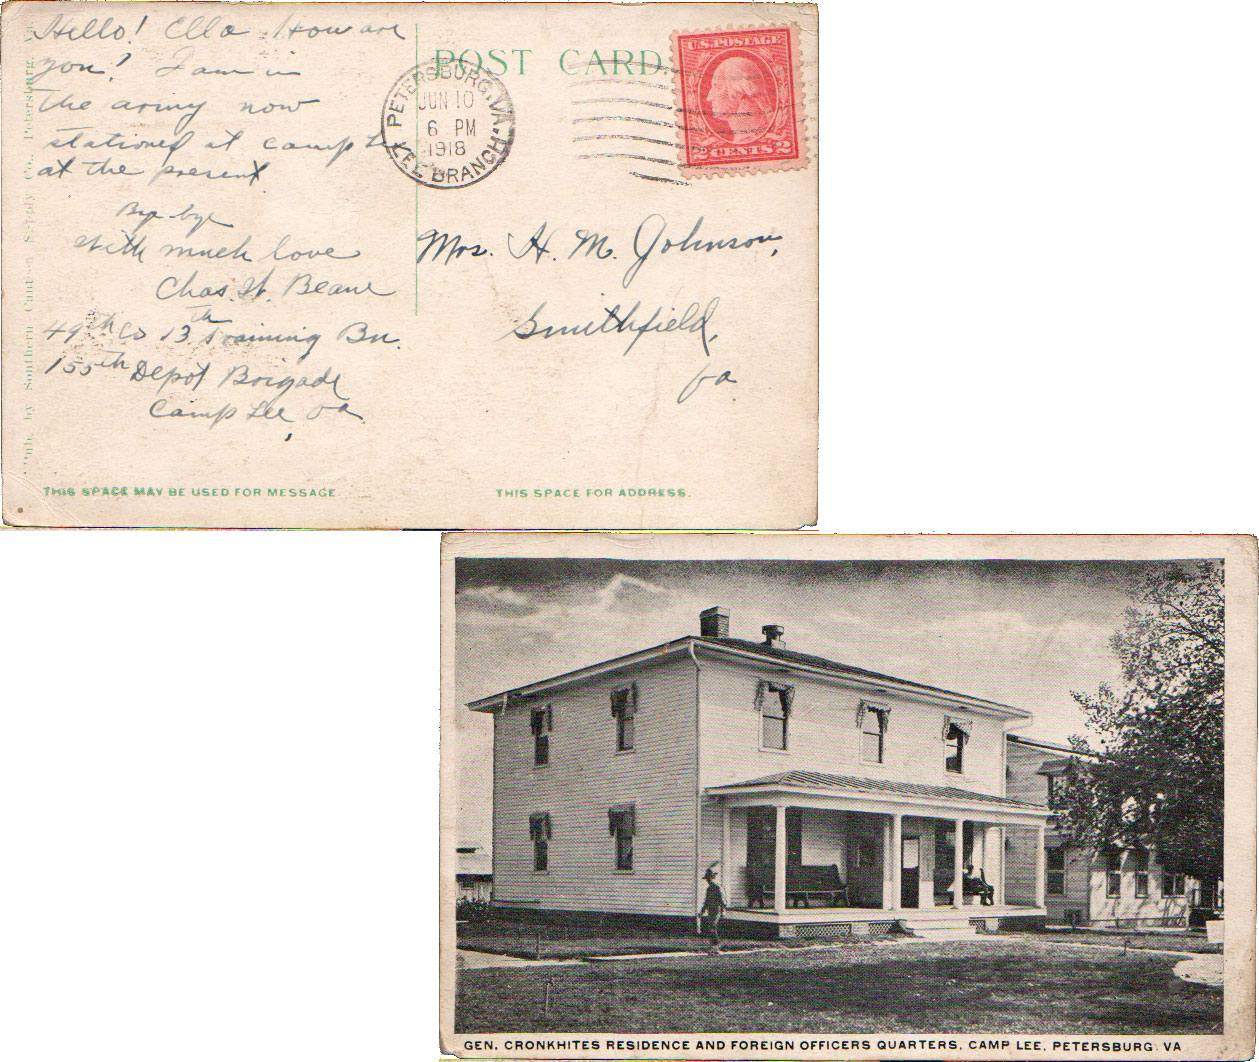 Hello! Ella How are
you? I am in
the army now
stationed at Camp Lee
at the present
Bye-bye
With much love
Chas. W. Beane
49th Co 13th Training Bn.
155th Depot Brigade
Camp Lee, Va
Pub. by Southern Canteen Supply Co., Petersburg, Va.
THIS SPACE MAY BE USED FOR MESSAGE.
POST CARD.
PETERSBURG, VA.
JUN 10
6 PM
1918
LEE BRANCH
U.S. POSTAGE
2 CENTS 2
Mrs. H. M. Johnson,
Smithfield,
Va.
THIS SPACE FOR ADDRESS.
GEN. CRONKHITES RESIDENCE AND FOREIGN OFFICERS QUARTERS, CAMP LEE, PETERSBURG. VA